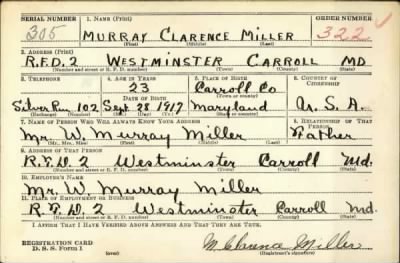 SERIAL NUMBER 1. NAME (Print) ORDER NUMBER
305 MURRAY CLARENCE MILLER 3221
(First) (Middle) (Last)
2. ADDRESS (Print)
R.F.D. 2 WESTMINSTER CARROLL MD
(Number and street or R. F. D. number) (Town) (County) (State)
3. TELEPHONE 4. AGE IN YEARS 5. PLACE OF BIRTH 6. COUNTRY OF CITIZENSHIP
23 Carroll Co
DATE OF BIRTH (Town or county)
Silver Run 102 Sept. 28 1917 Maryland U. S. A.
(Exchange) (Number) (Mo.) (Day) (Yr.) (State or country)
7. NAME OF PERSON WHO WILL ALWAYS KNOW YOUR ADDRESS 8. RELATIONSHIP OF THAT PERSON
Mr. W. Murray Miller Father
(Mr., Mrs., Miss) (First) (Middle) (Last)
9. ADDRESS OF THAT PERSON
R.F.D. 2 Westminster Carroll Md.
(Number and street or R. F. D. number) (Town) (County) (State)
10. EMPLOYER'S NAME
Mr. W. Murray Miller
11. PLACE OF EMPLOYMENT OR BUSINESS
R. F. D. 2 Westminster Carroll Md.
(Number and street or R. F. D. number) (Town) (County) (State)
I AFFIRM THAT I HAVE VERIFIED ABOVE ANSWERS AND THAT THEY ARE TRUE.
REGISTRATION CARD
D. S. S. Form 1 (over) M. Clarence Miller
(Registrant's signature)